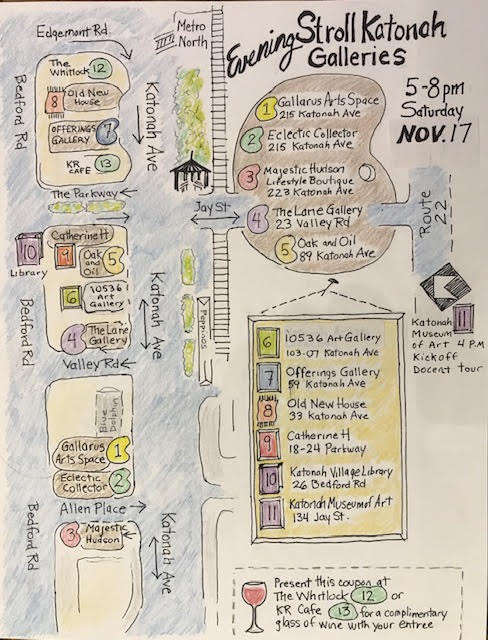 Edgemont Rd.
Metro
North
Evening Stroll Katonah
Galleries
5-8 pm
Saturday
NOV. 17
Bedford Rd
The
Whitlock 12
8 Old New
House
OFFERINGS
GALLERY 7
KR
CAFE 13
Katonah Ave
The Parkway
Jay St
1 Gallarus Arts Space
215 Katonah Ave
2 Eclectic Collector
215 Katonah Ave.
3 Majestic Hudson
Lifestyle Boutique
223 Katonah Ave
4 The Lane Gallery
23 Valley Rd
5 Oak and Oil
89 Katonah Ave
Route
22
10
Library
Catherine H
9
Oak
and
Oil 5
6 10536
Art
Gallery
4 The Lane
Gallery
Bedford Rd
Katonah Ave
Peppinos
Valley Rd
11
Katonah
Museum
of Art 4 P.M
Kickoff
Docent tour
6 10536 Art Gallery
103-07 Katonah Ave
7 Offerings Gallery
59 Katonah Ave
8 Old New House
33 Katonah Ave.
9 Catherine H
18-24 Parkway
10 Katonah Village Library
26 Bedford Rd
11 Katonah Museum of Art
134 Jay St.
Blue
Dolphin
Gallarus
Arts Space 1
Eclectic
Collector 2
Allen Place
3 Majestic
Hudson
Bedford Rd
Katonah Ave
Present this coupon at
The Whitlock 12 or
KR Cafe 13 for a complimentary
glass of wine with your entree